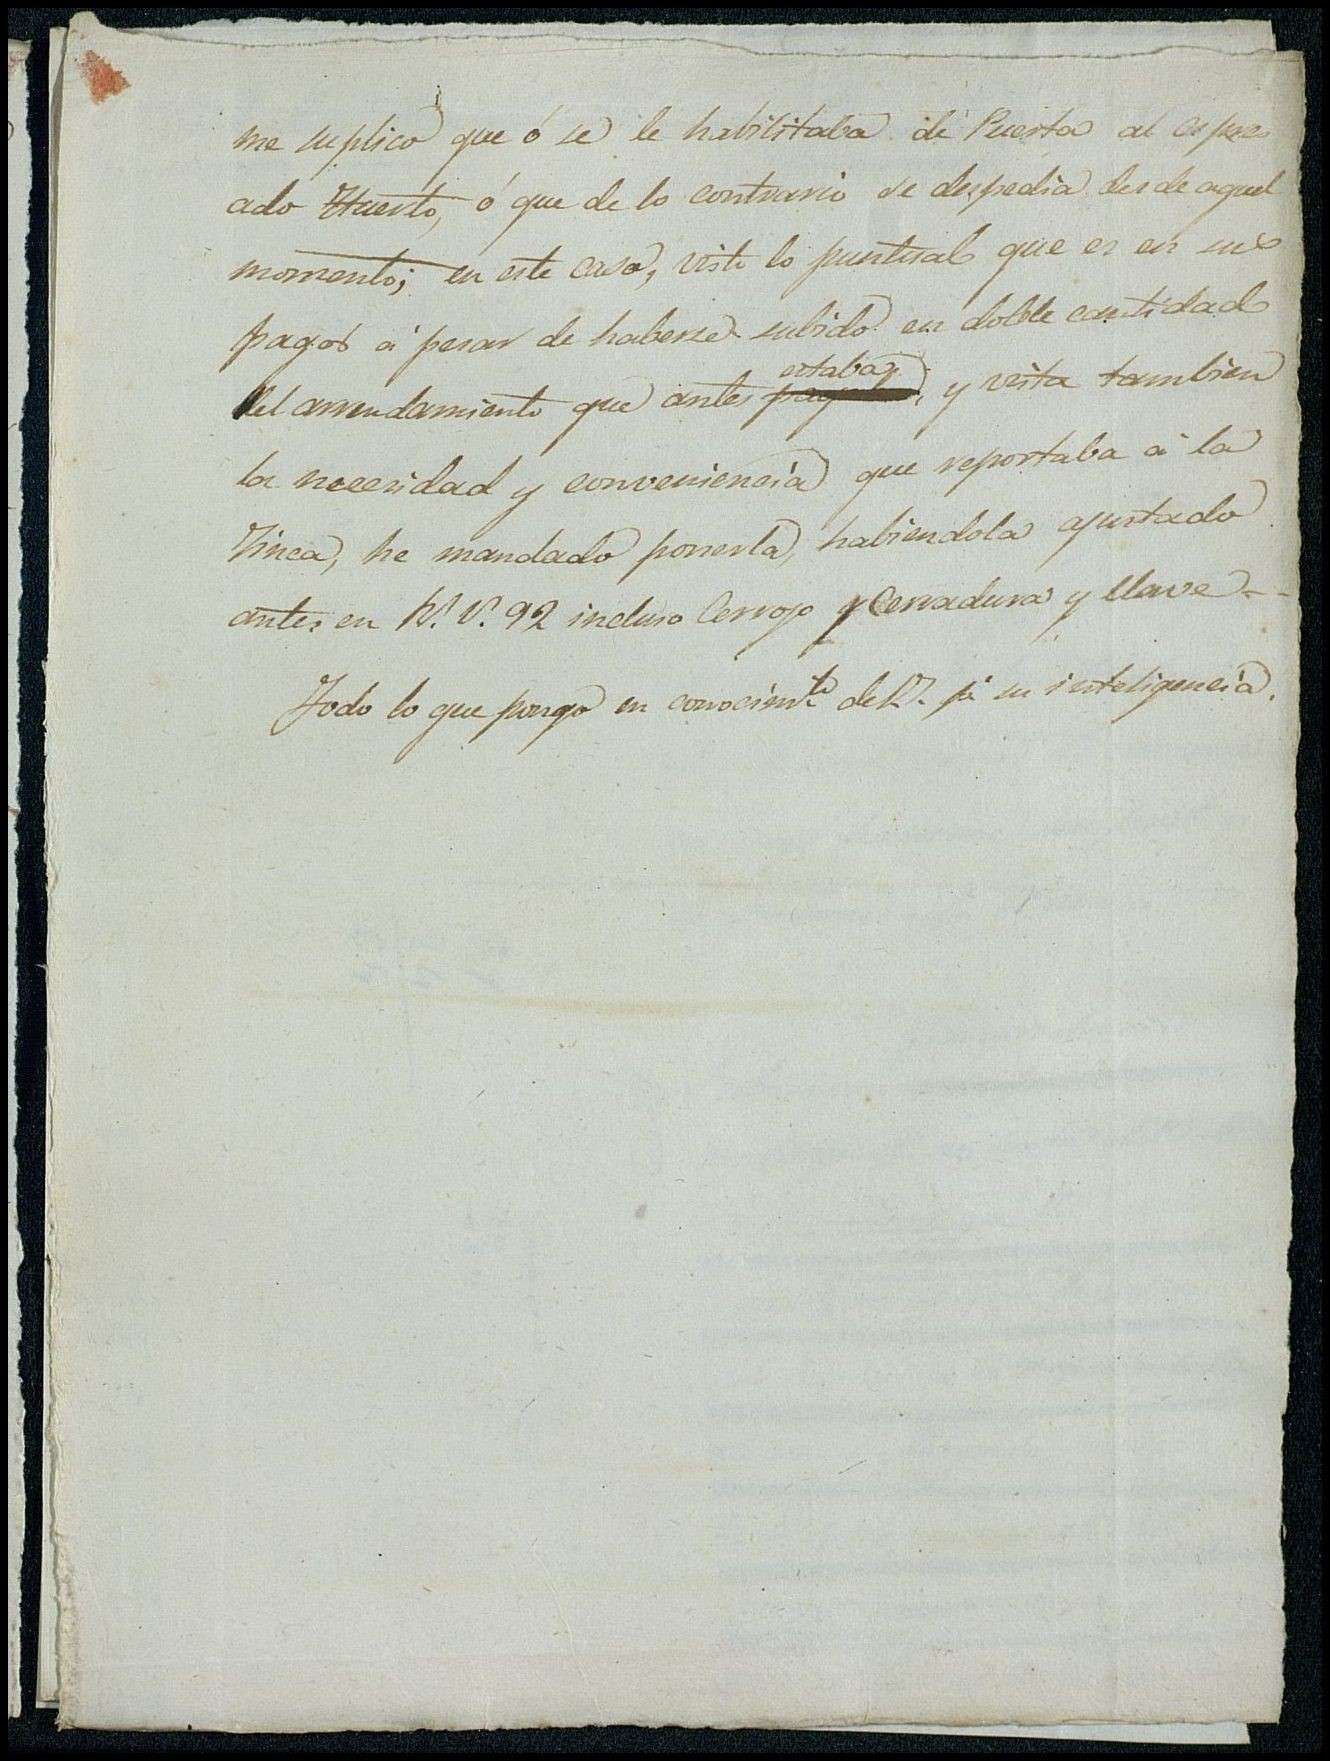 me suplicó que ó se le habilitaba de Puerta al espre
ado Huerto, ó que de lo contrario se despedia desde aquel
momento; en este caso, visto lo puntual que es en sus
pagos á pesar de haberse subido en doble cantidad
del arrendamiento que antes estaba, y vista tambien
la necesidad y conveniencia que reportaba á la
Finca, he mandado ponerla, habiendola ajustado
antes en Rs. Vn. 92 incluso Cerrojo y Cerradura y llave
Todo lo que pongo en conocimto de V. pa su inteligencia.